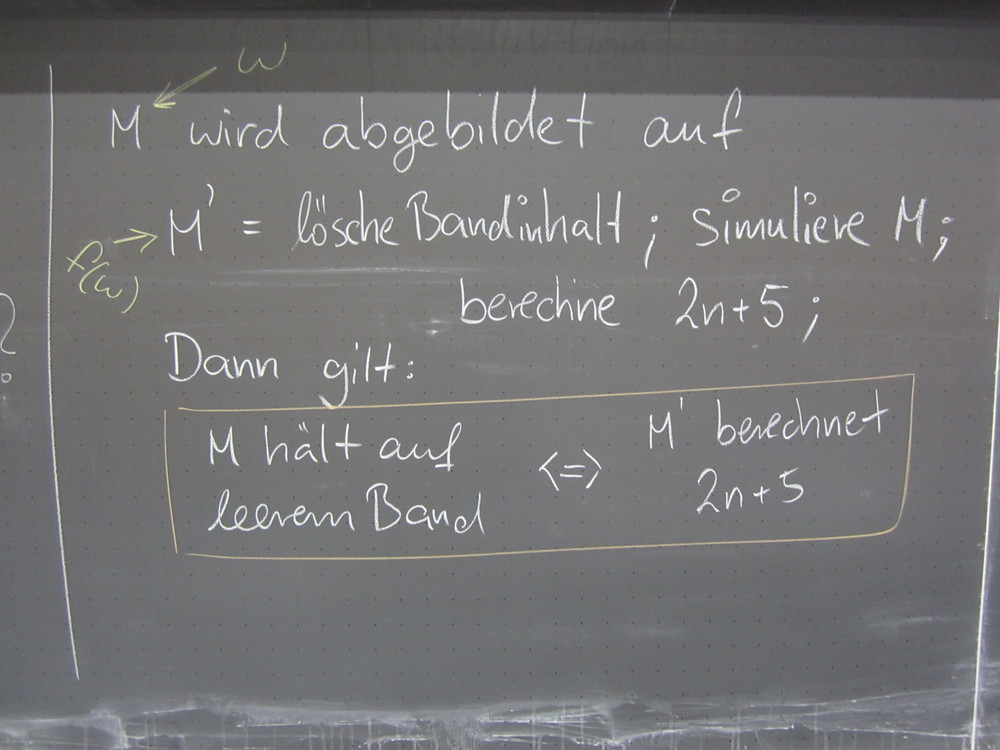 w
M wird abgebildet auf
f(w) → M' = lösche Bandinhalt; simuliere M;
berechne 2n+5;
Dann gilt:
M hält auf leerem Band <=> M' berechnet 2n+5
?